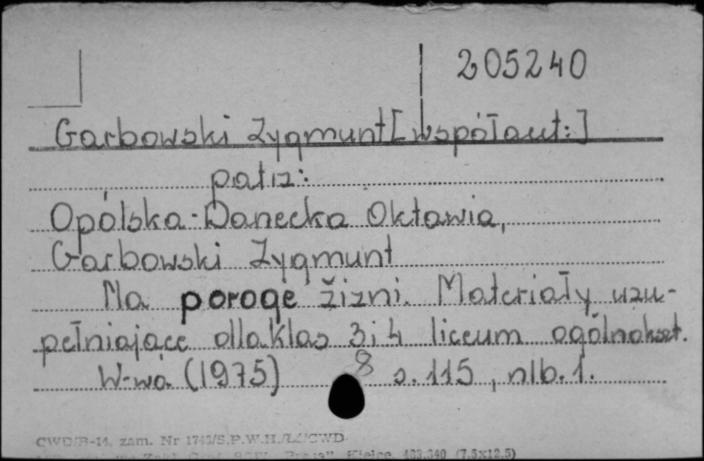 205240
Garbowski Zygmunt [współaut:]
patrz:
Opólska-Danecka Oktawia,
Garbowski Zygmunt
Na poroge žizni. Materiały uzu-
pełniające dla klas 3 i 4 liceum ogólnokszt.
W-wa (1975) 8 s. 115, nlb. 1.
CWD/B-14, zam. Nr S.P.W.H.
Kielce, (7,5x12,5)